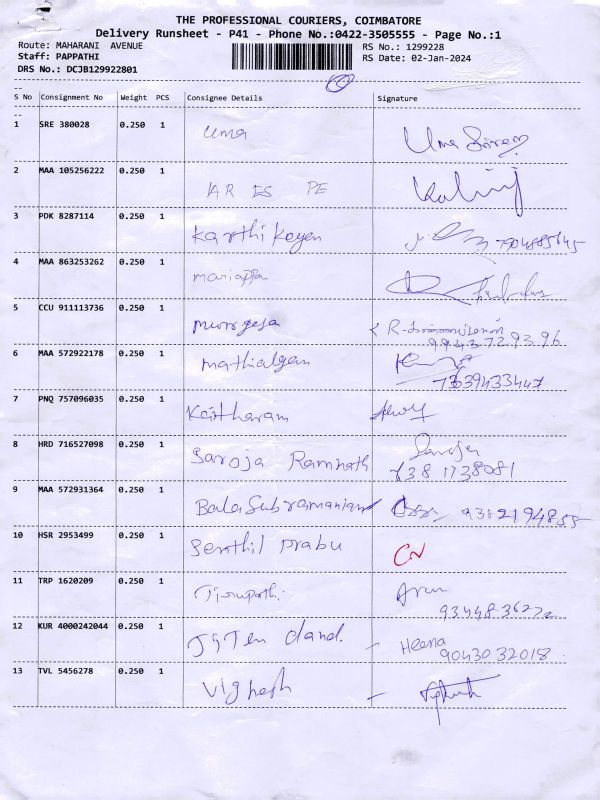 THE PROFESSIONAL COURIERS, COIMBATORE
Delivery Runsheet - P41 - Phone No.:0422-3505555 - Page No.:1
Route: MAHARANI AVENUE
RS No.: 1299228
Staff: PAPPATHI
RS Date: 02-Jan-2024
DRS No.: DCJB129922801
S No Consignment No Weight PCS Consignee Details Signature
1 SRE 380028 0.250 1 uma Uma
2 MAA 105256222 0.250 1
3 PDK 8287114 0.250 1 Karthi Keyen
4 MAA 863253262 0.250 1 mariappa
5 CCU 911113736 0.250 1 murugesa
9943729396
6 MAA 572922178 0.250 1 mathialgan
7639433447
7 PNQ 757096035 0.250 1
8 HRD 716527098 0.250 1 Saroja Ramnath Saroja
9 MAA 572931364 0.250 1 Bala Subramanian 9382194855
10 HSR 2953499 0.250 1 Senthil Prabu
11 TRP 1620209 0.250 1 Arun
12 KUR 4000242044 0.250 1 Heena
9043032018
13 TVL 5456278 0.250 1 Vighesh